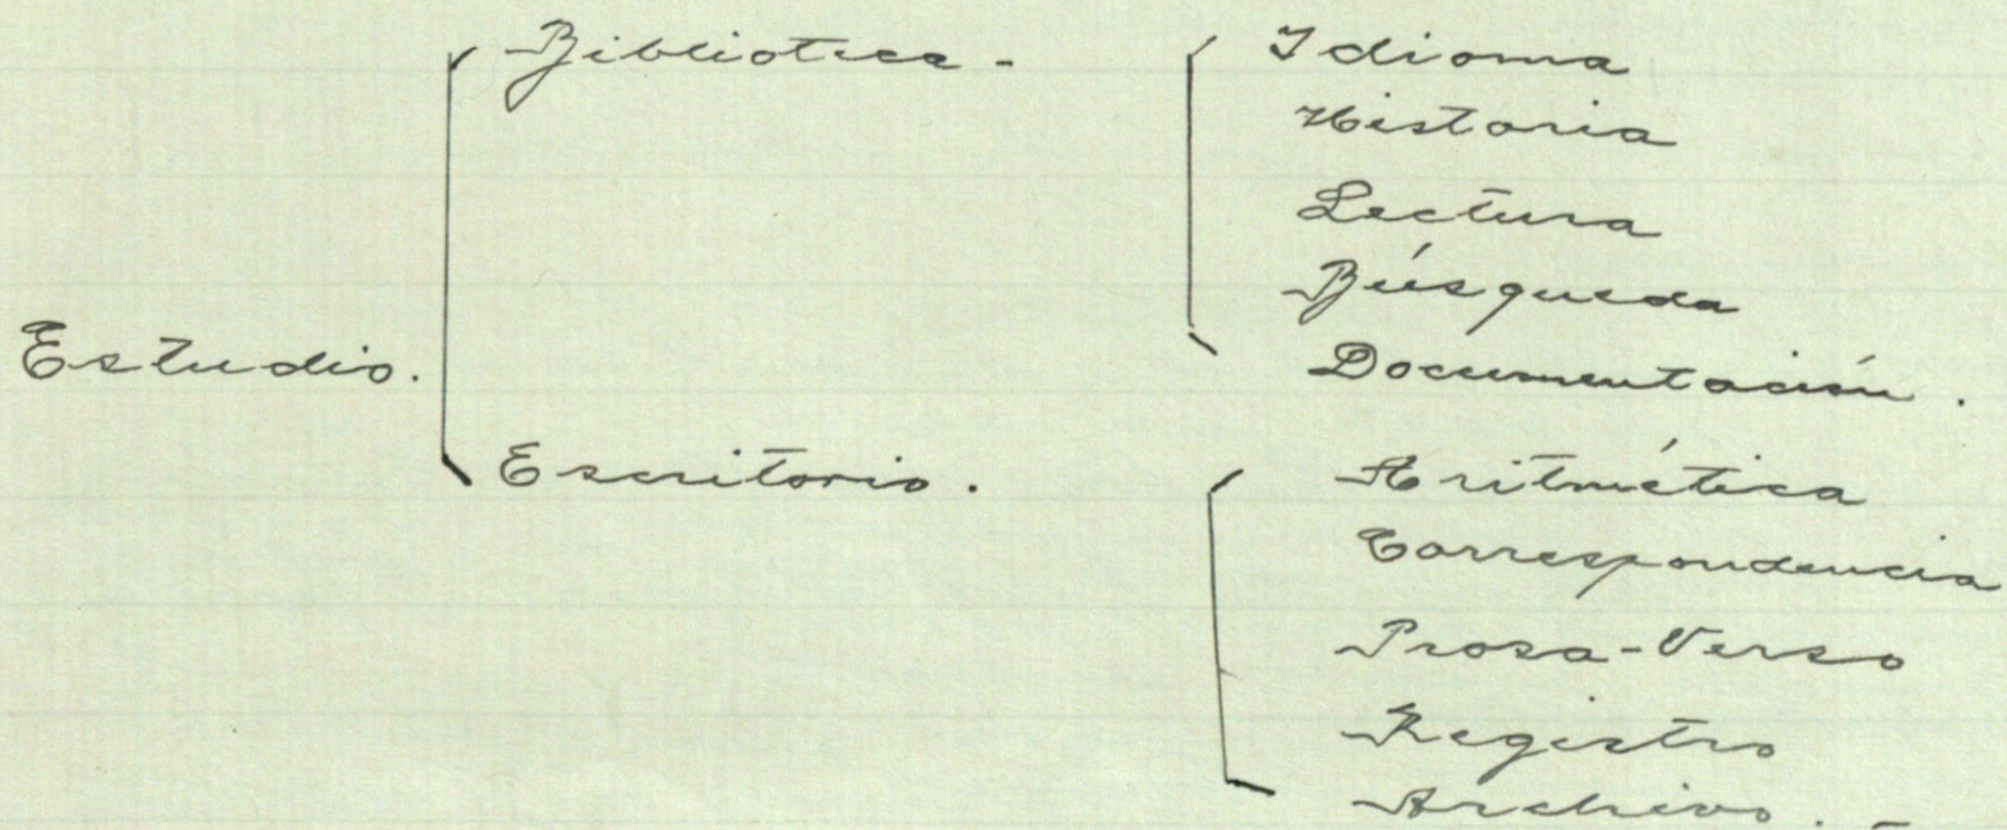 Biblioteca -
Idioma
Historia
Lectura
Búsqueda
Estudio.
Documentación.
Escritorio.
Aritmética
Correspondencia
Prosa-Verso
Registro
Archivo. -